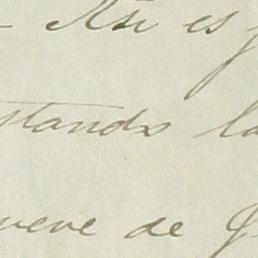 Así es
stando la
ueve de